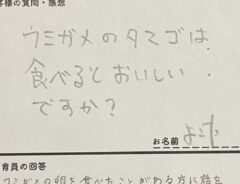 客様の質問・感想
ウミガメのタマゴは
食べるとおいしい
ですか?
お名前
育員の回答
ウミガメの卵を食べたことがある方に話を